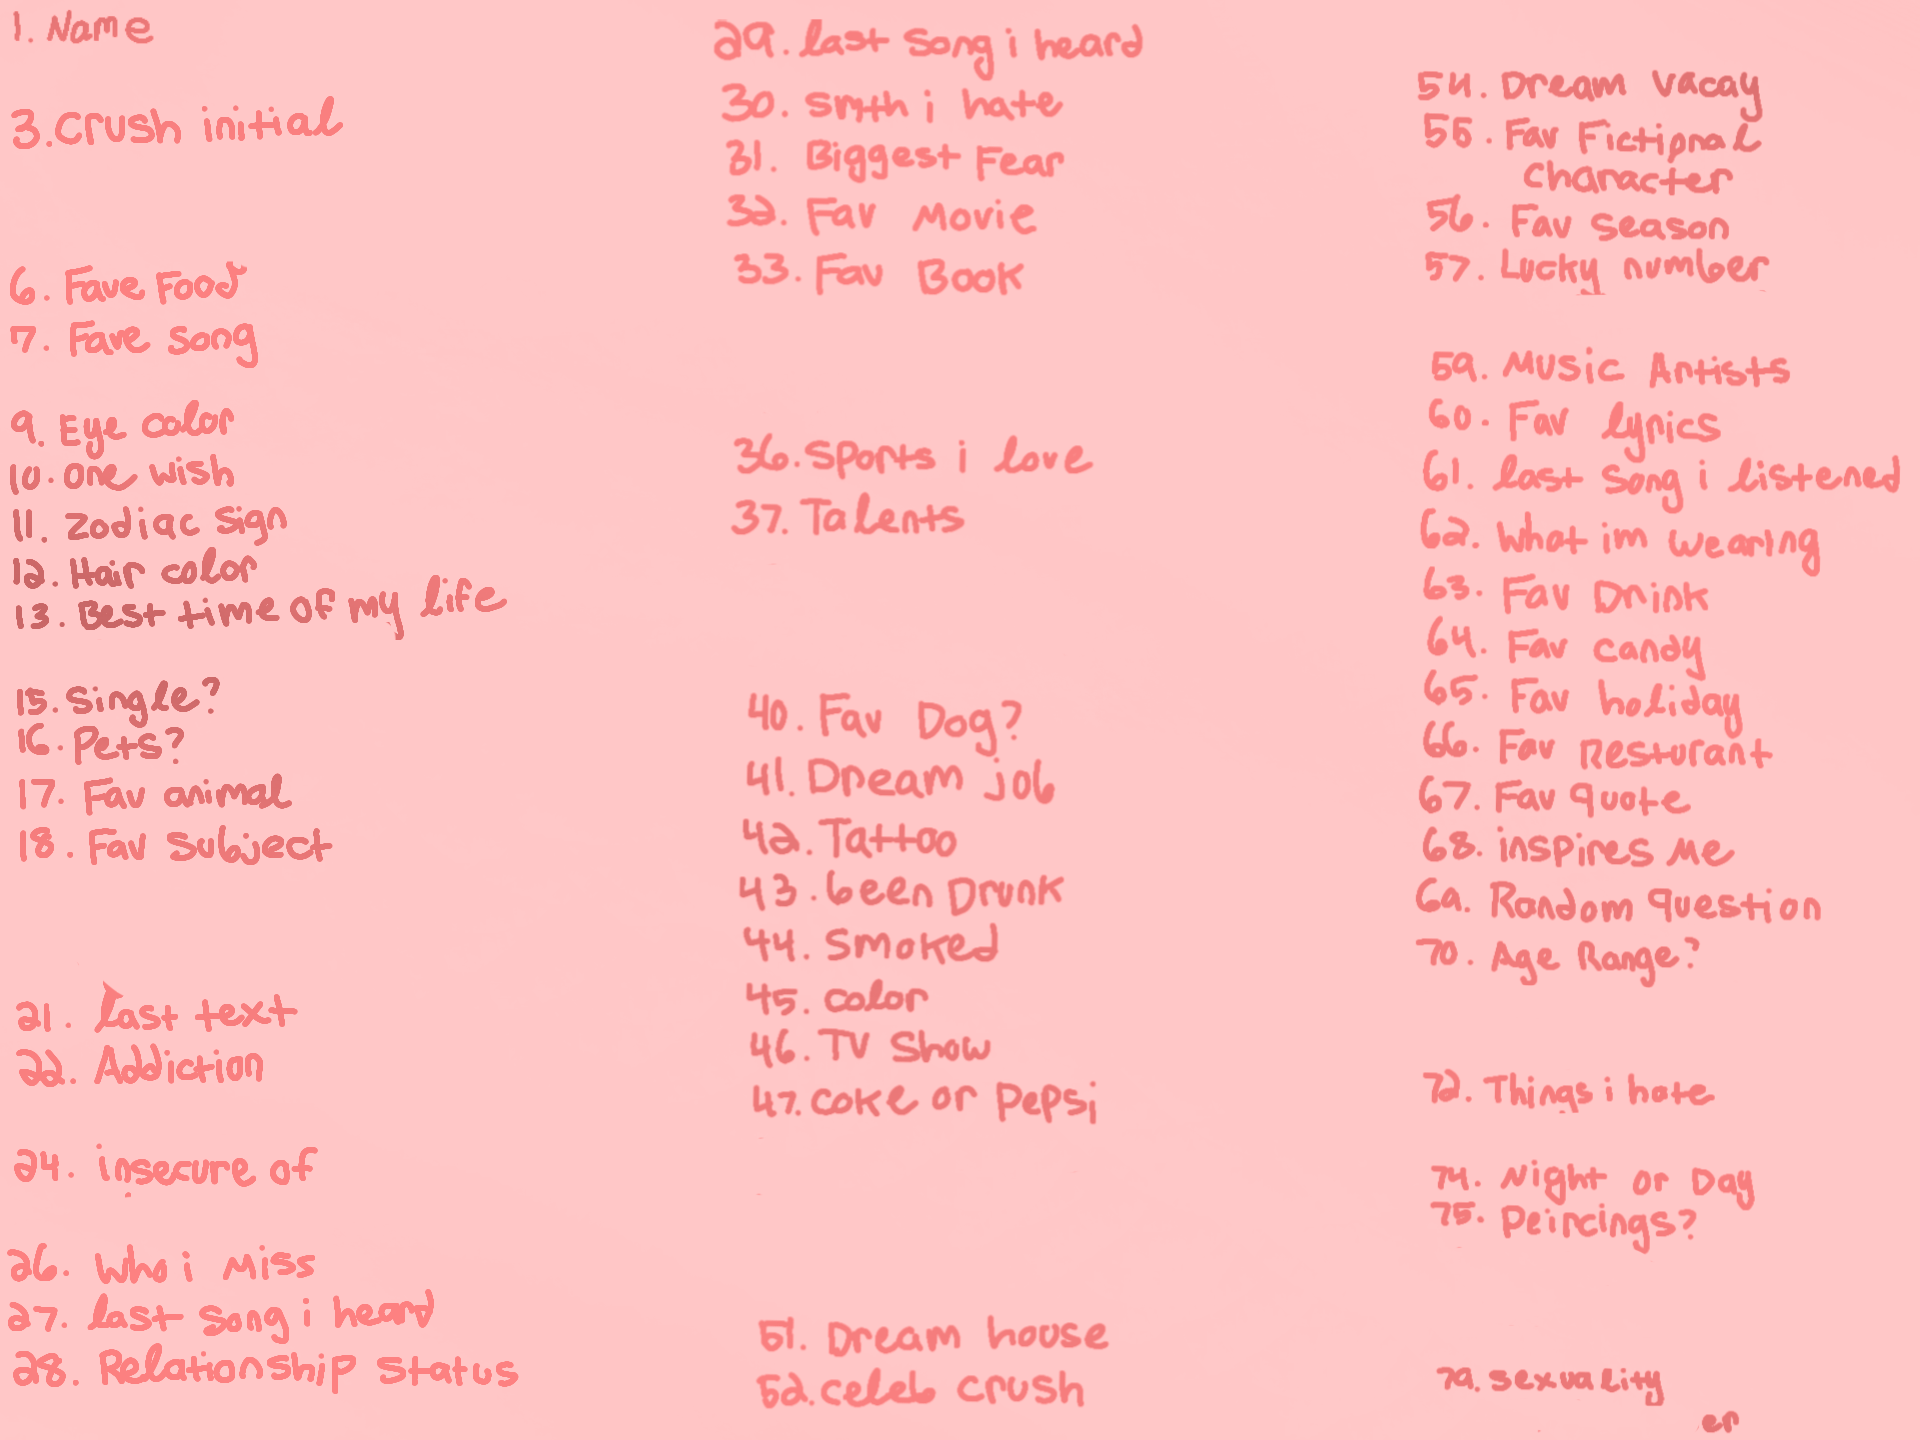 1. Name
3. Crush initial
6. Fave Food
7. Fave song
9. Eye color
10. one wish
11. Zodiac sign
12. Hair color
13. Best time of my life
15. Single?
16. Pets?
17. Fav animal
18. Fav subject
21. last text
22. Addiction
24. insecure of
26. Who i miss
27. last song i heard
28. Relationship status
29. last song i heard
30. smth i hate
31. Biggest Fear
32. Fav Movie
33. Fav Book
36. Sports i love
37. Talents
40. Fav Dog?
41. Dream job
42. Tattoo
43. been Drunk
44. Smoked
45. color
46. TV Show
47. coke or Pepsi
51. Dream house
52. celeb crush
54. Dream vacay
55. Fav Fictional
character
56. Fav season
57. Lucky number
59. Music Artists
60. Fav lyrics
61. last song i listened
62. What im wearing
63. Fav Drink
64. Fav candy
65. Fav holiday
66. Fav Resturant
67. Fav quote
68. inspires Me
69. Random question
70. Age Range?
72. Things i hate
74. Night or Day
75. Peircings?
79. sexuality
er